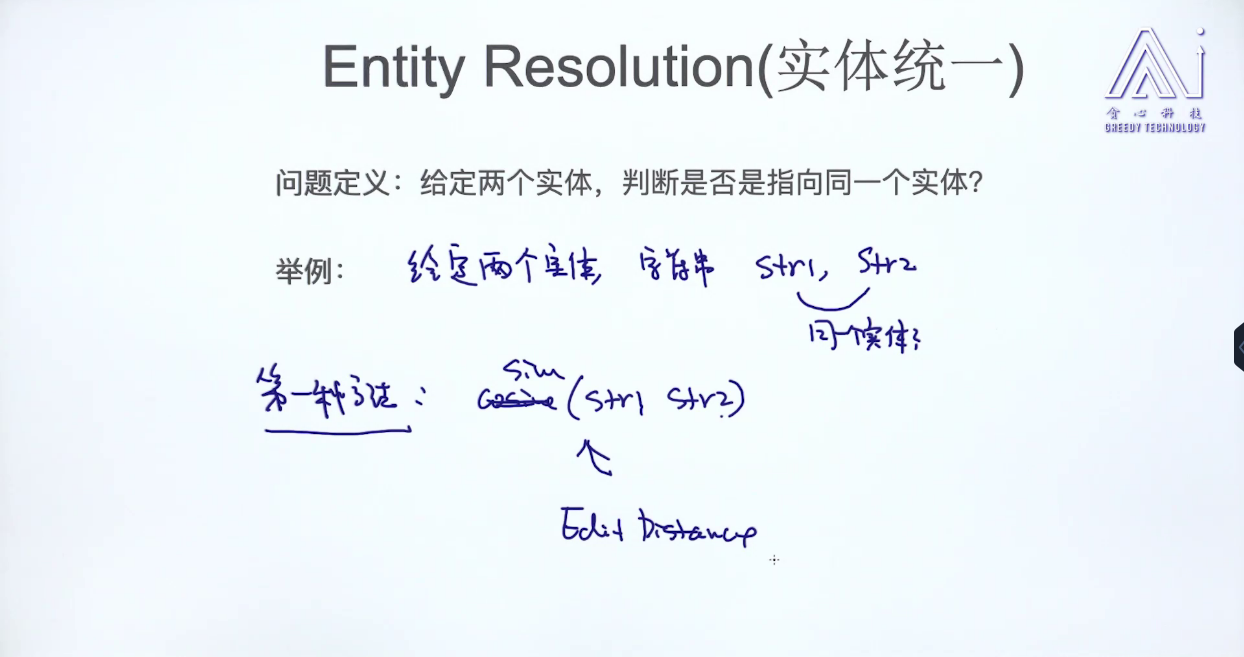 Entity Resolution(实体统一)
贪心科技
GREEDY TECHNOLOGY
问题定义：给定两个实体，判断是否是指向同一个实体？
举例： 给定两个实体, 字符串 str1, str2
同一个实体?
第一种方法： sim
cosine (str1 str2)
Edit Distance